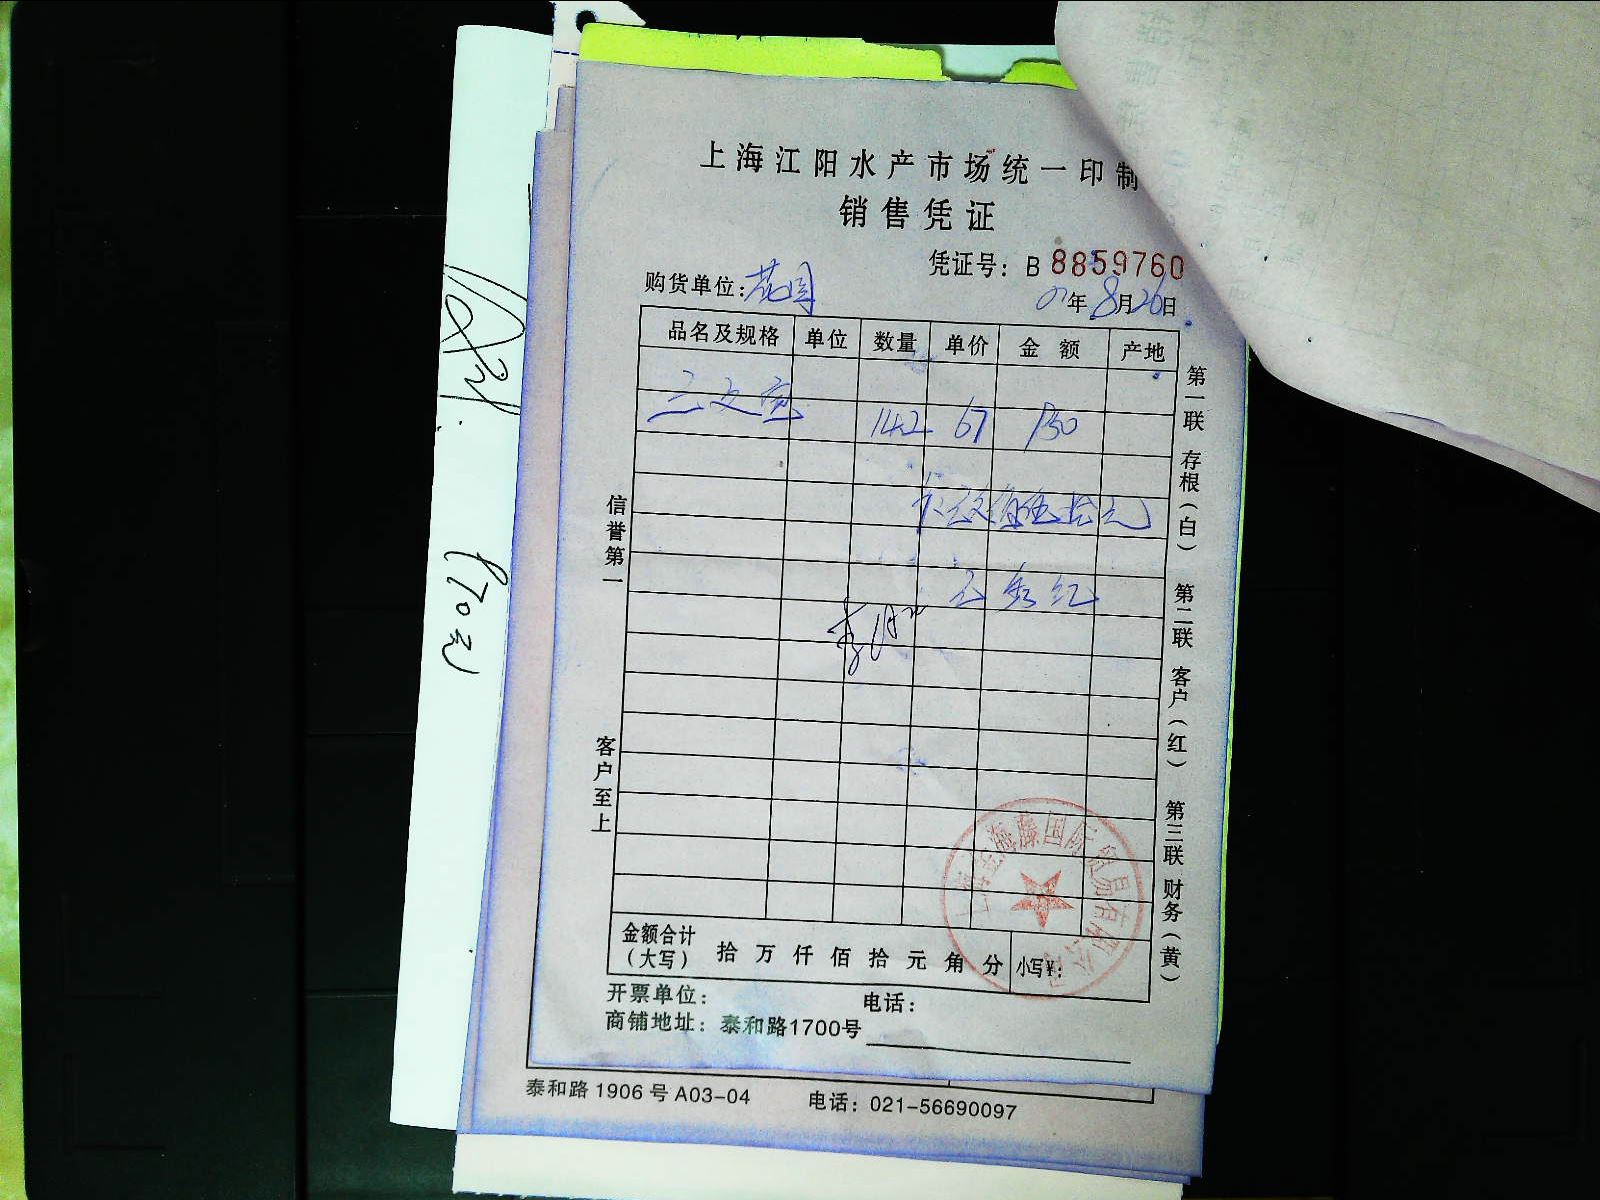 上海江阳水产市场统一印制
销售凭证
凭证号：B 8859760
购货单位：花园
年8月26日
品名及规格 单位 数量 单价 金额 产地
三文鱼 142 67 950
信誉第一
客户至上
第一联 存根（白） 第二联 客户（红） 第三联 财务（黄）
国际贸易有限公司
金额合计（大写） 拾 万 仟 佰 拾 元 角 分 小写¥：
开票单位： 电话：
商铺地址：泰和路1700号
泰和路1906号A03-04 电话：021-56690097